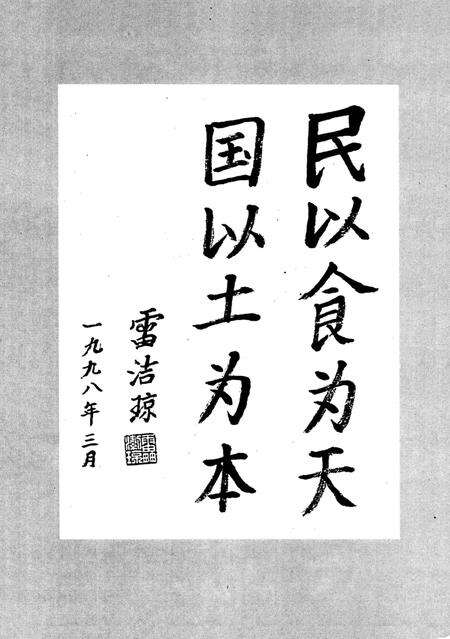 民以食为天
国以土为本
雷洁琼
一九九八年三月